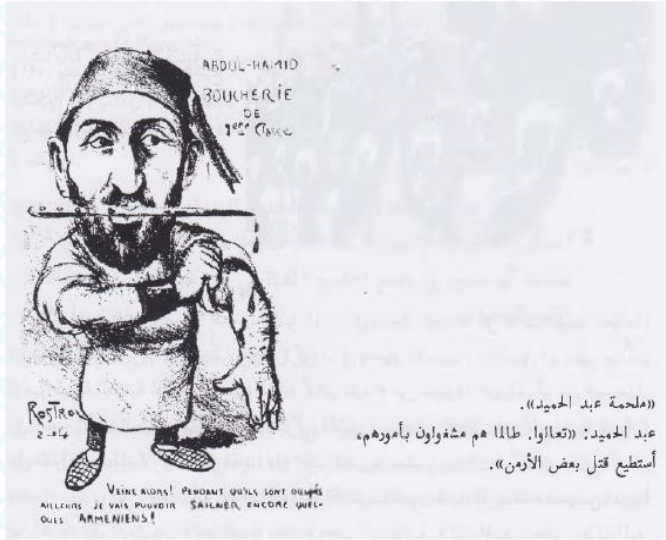 ABDUL-HAMID
BOUCHERIE
DE
1ère Classe
Rostro
2-04
VEINE ALORS! PENDANT QU'ILS SONT OCUPÉS
AILLEURS JE VAIS POUVOIR SAIGNER ENCORE QUEL-
QUES ARMENIENS!
«ملحمة عبد الحميد».
عبد الحميد: «تعالوا. طالما هم مشغولون بأمورهم،
أستطيع قتل بعض الأرمن».